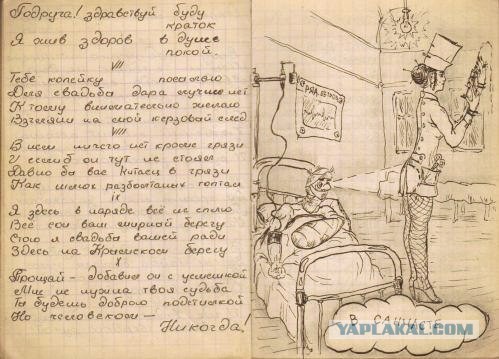 Подруга! здравствуй буду
краток
Я жив здоров в душе
покой.
VII
Тебе копейку посылаю
Для свадьбы дара лучше нет
К тому внимательно желаю
Взгляни на мой керзовый след
VIII
В нём ничего нет кроме грязи
И если б он тут не стоял
Давно бы вас китаец в грязи
Как шлюх разботаных топтал
IX
Я здесь в наряде всё не сплю
Все сон ваш мирный берегу
Стою я свадьбы вашей ради
Здесь на Краснском берегу
X
Прощай - добавил он с усмешкой
Мне не нужна твоя судьба
Ты будешь доброю подстилкой
Но человеком -
Никогда!
В САНЧАСТЕ
YAPLAKAL.COM